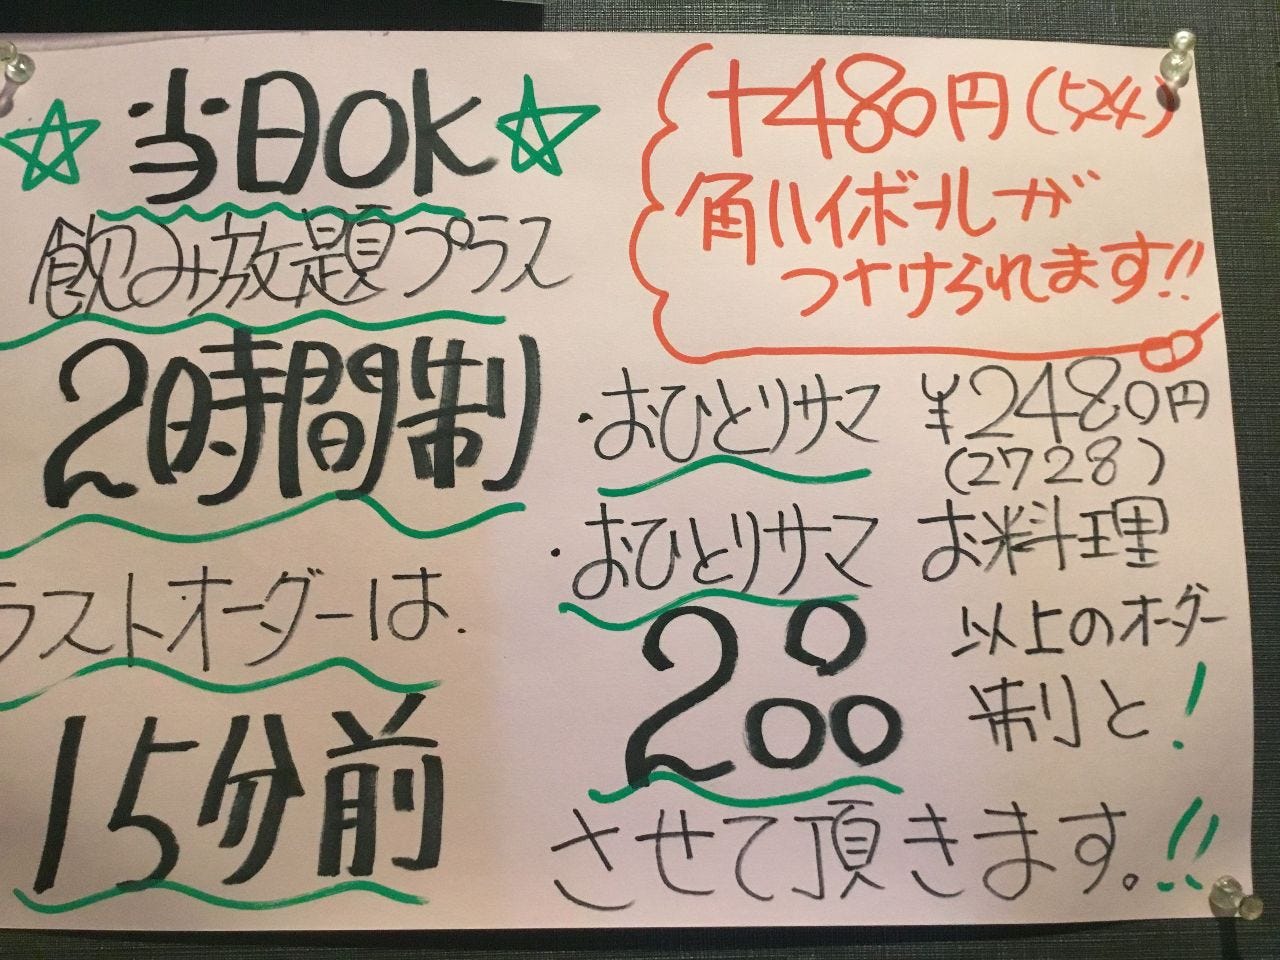 ☆当日OK☆
飲み放題プラス
2時間制
ラストオーダーは
15分前
+480円(524)
角ハイボールが
つけられます!!
・おひとりサマ ¥2480円
(2728)
・おひとりサマ お料理
2品 以上のオーダー
制と!
させて頂きます。!!